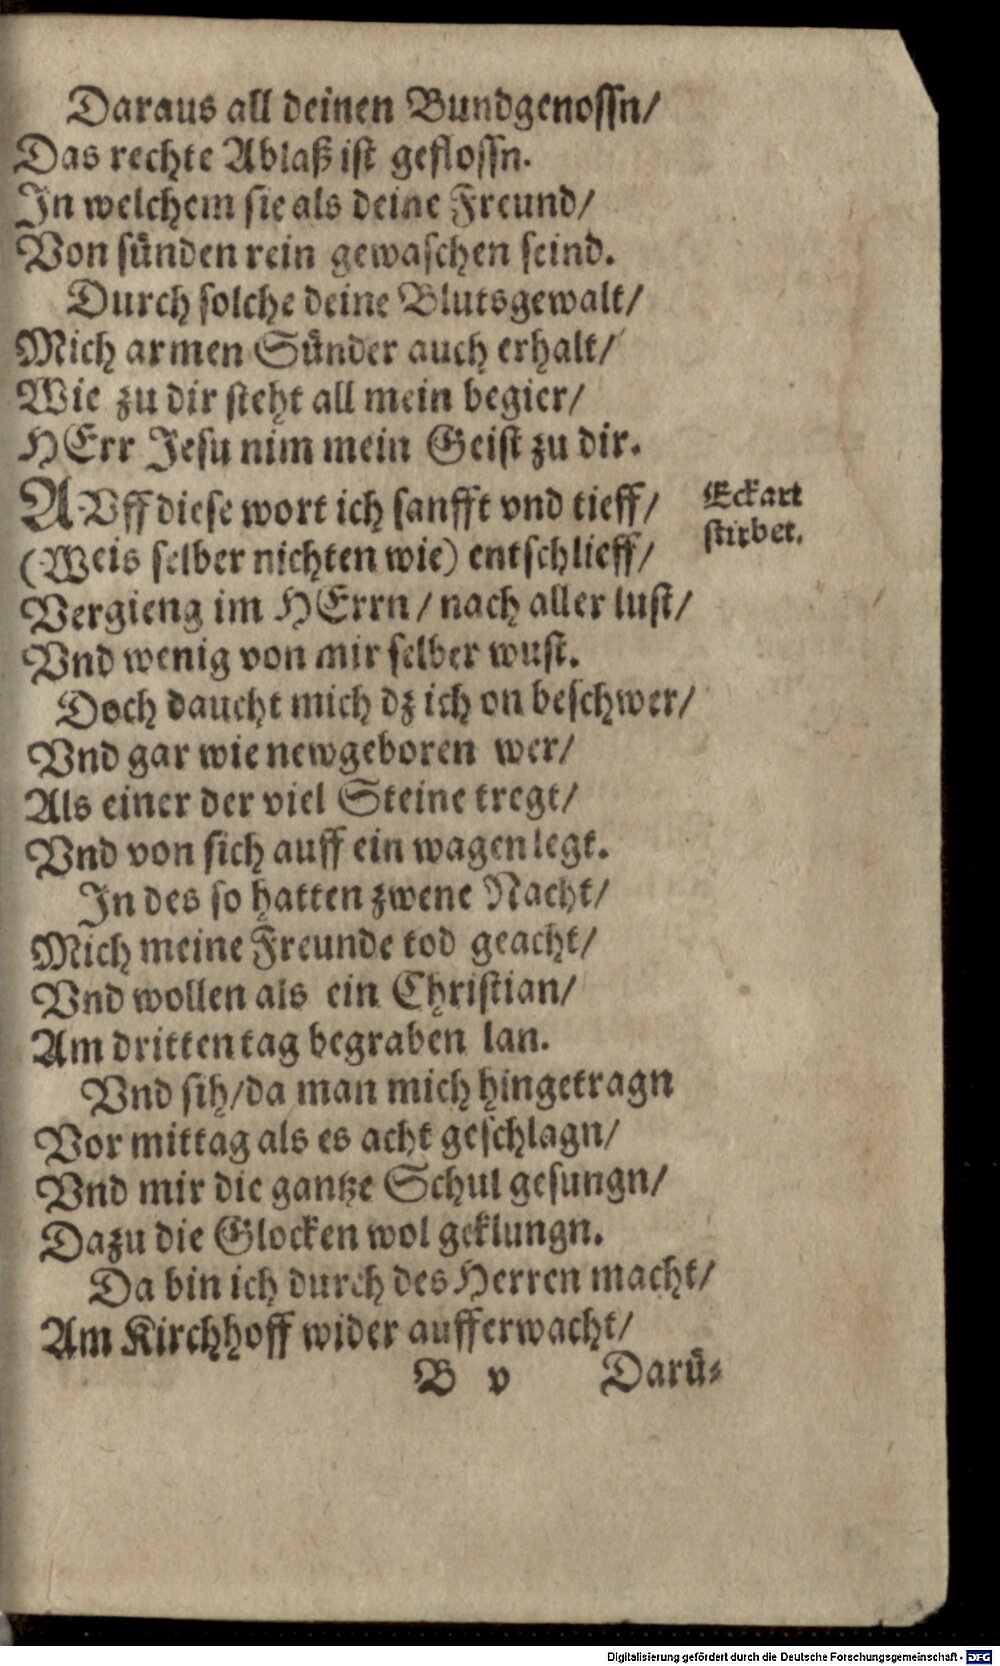 Daraus all deinen Bundgenossn/
Das rechte Ablaß ist geflossn.
In welchem sie als deine Freund/
Von sünden rein gewaschen seind.
Durch solche deine Blutsgewalt/
Mich armen Sünder auch erhalt/
Wie zu dir steht all mein begier/
HErr Jesu nim mein Geist zu dir.
AVff diese wort ich sanfft vnd tieff/
Eckart
stirbet.
(Weis selber nichten wie) entschlieff/
Vergieng im HErrn/ nach aller lust/
Vnd wenig von mir selber wust.
Doch daucht mich dz ich on beschwer/
Vnd gar wie newgeboren wer/
Als einer der viel Steine tregt/
Vnd von sich auff ein wagen legt.
In des so hatten zwene Nacht/
Mich meine Freunde tod geacht/
Vnd wollen als ein Christian/
Am dritten tag begraben lan.
Vnd sih/ da man mich hingetragn
Vor mittag als es acht geschlagn/
Vnd mir die gantze Schul gesungn/
Dazu die Glocken wol geklungn.
Da bin ich durch des Herren macht/
Am Kirchhoff wider aufferwacht/
B v Darü-
Digitalisierung gefördert durch die Deutsche Forschungsgemeinschaft - DFG